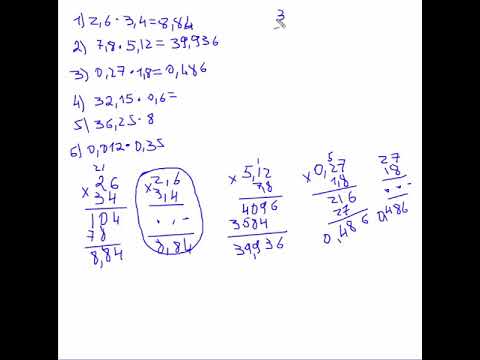 1) 2,6 · 3,4 = 8,84
2) 7,8 · 5,12 = 39,936
3) 0,27 · 1,8 = 0,486
4) 32,15 · 0,6 =
5) 36,25 · 8
6) 0,012 · 0,35
3
21
× 26
34
104
78
8,84
× 2,6
3,4
· , -
8,84
1
× 5,12
7,8
4096
3584
39,936
5
× 0,27
1,8
216
27
0,486
27
18
· · -
0,486